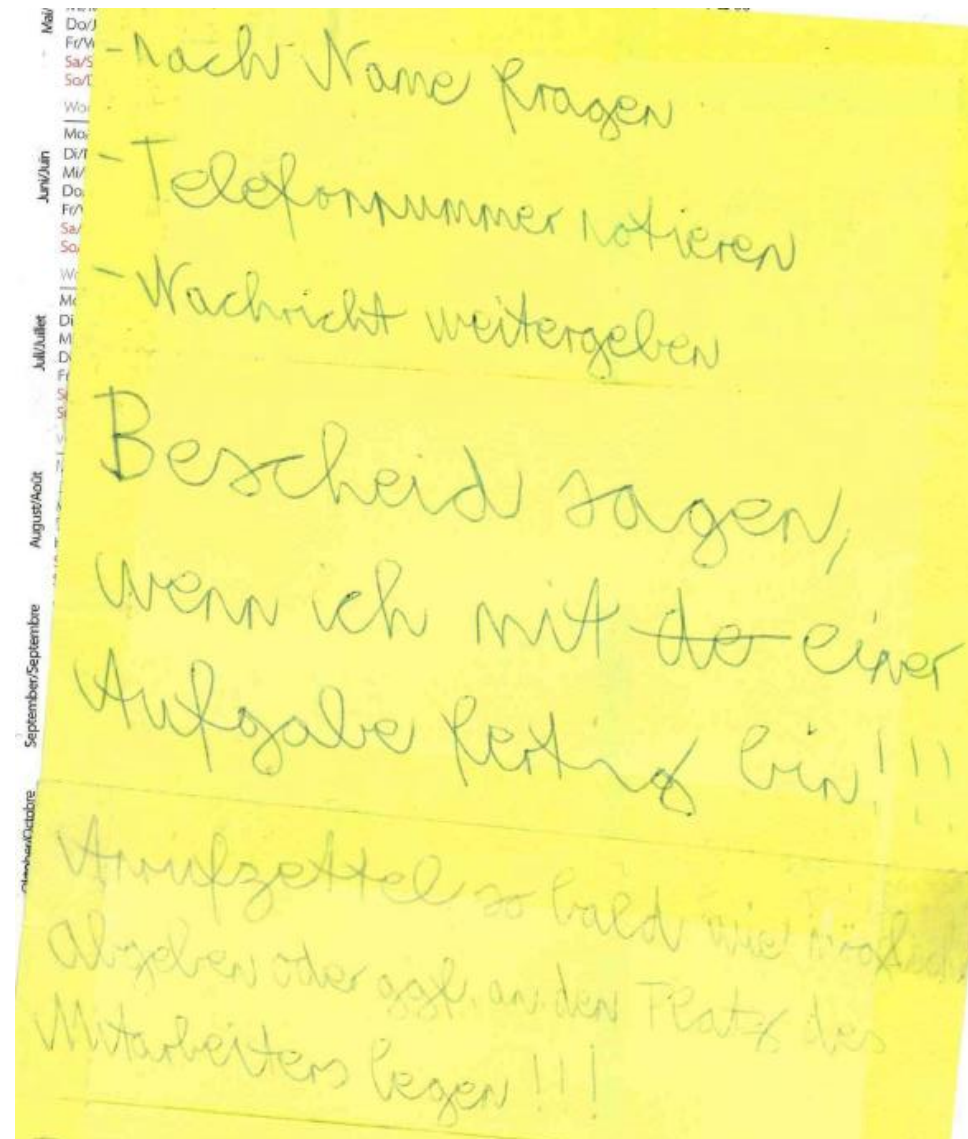 Mai/
Do/J
Fr/V
Sa/S
So/D
Wo
Mo/
Di/
Mi/
Do/
Fr/V
Sa/
So/
Juni/Juin
Juli/Juillet
August/Août
September/Septembre
Oktober/Octobre
- nach Name fragen
- Telefonnummer notieren
- Nachricht weitergeben
Bescheid sagen,
wenn ich mit de einer
Aufgabe fertig bin!!!
Anrufzettel so bald wie möglich
abgeben oder ggf. an den Platz des
Mitarbeiters legen!!!